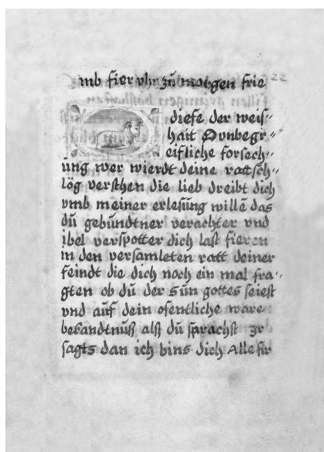 vmb fier vhr zu morgen frie 22
diefe der weis-
hait Ovnbegr-
eifliche forsech-
ung wer wierdt deine rattsch-
lög versthen die lieb dreibt dich
vmb meiner erlesung wille das
du gebundtner verachter vnd
ibel verspotter dich last fieren
in den versamleten ratt deiner
feindt die dich noch ein mal fra-
gten ob du der sun gottes seiest
vnd auf dein ofentliche ware
bekandtnuß alß du sprachst Ir
sagts dan ich bins dich Alle fir